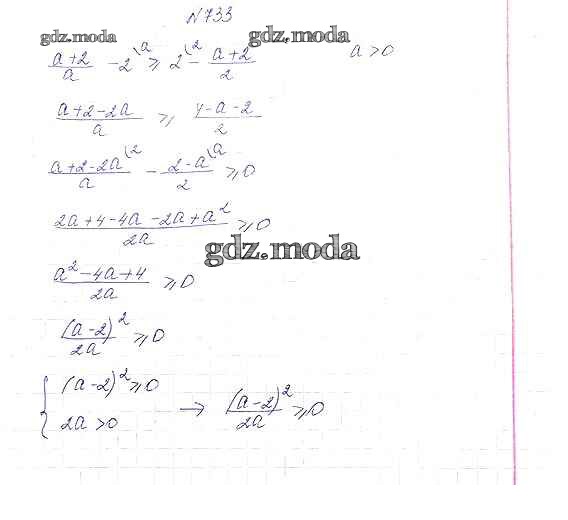 N 733
gdz.moda gdz.moda
(a+2)/a - 2 \a ≥ 2 \2 - (a+2)/2 a > 0
(a+2-2a)/a ≥ (4-a-2)/2
(a+2-2a)/a \2 - (2-a)/2 \a ≥ 0
(2a+4-4a-2a+a²)/2a ≥ 0
gdz.moda
(a²-4a+4)/2a ≥ 0
(a-2)²/2a ≥ 0
{ (a-2)² ≥ 0
2a > 0 → (a-2)²/2a ≥ 0